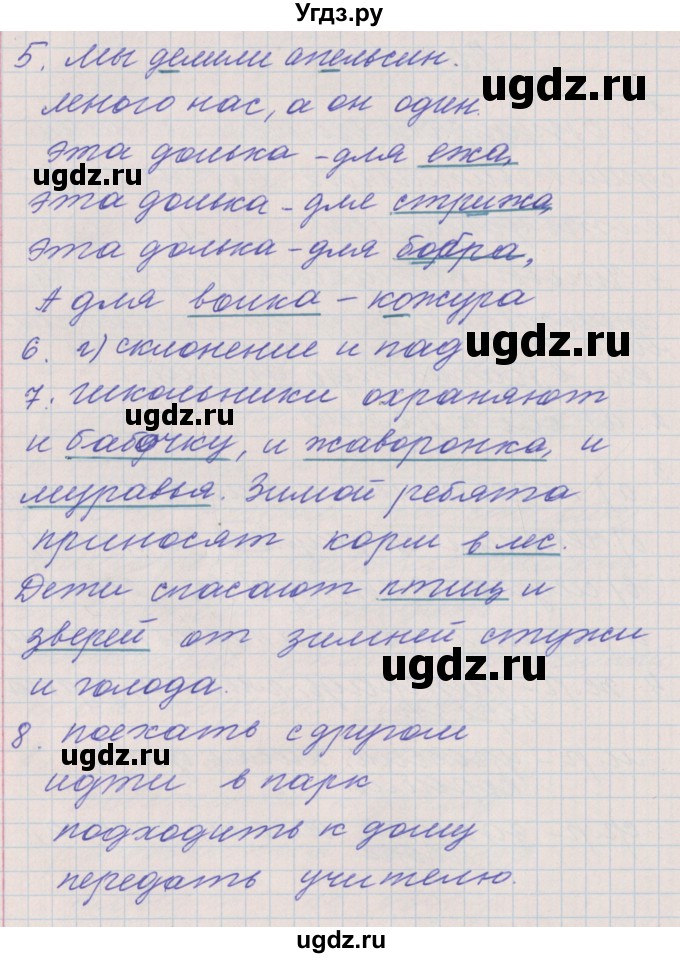 Угдз.ру
5. Мы делили апельсин.
ugdz.ru
Много нас, а он один.
Эта долька - для ежа,
ugdz.ru
Эта долька - для стрижа,
Эта долька - для бобра,
А для волка - кожура
ugdz.ru
6. г) склонение и пад
7. Школьники охраняют
ugdz.ru
и бабочку, и жаворонка, и
муравья. Зимой ребята
приносят корм в лес.
Дети спасают птиц и
зверей от зимней стужи
ugdz.ru
и голода.
8. поехать с другом
ugdz.ru
идти в парк
подходить к дому
передать учителю.
ugdz.ru